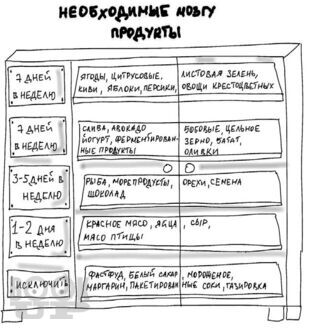 НЕОБХОДИМЫЕ МОЗГУ
ПРОДУКТЫ
7 ДНЕЙ
В НЕДЕЛЮ
ЯГОДЫ, ЦИТРУСОВЫЕ,
КИВИ, ЯБЛОКИ, ПЕРСИКИ,
ЛИСТОВАЯ ЗЕЛЕНЬ,
ОВОЩИ КРЕСТОЦВЕТНЫХ
7 ДНЕЙ
В НЕДЕЛЮ
СЛИВА, АВОКАДО
ЙОГУРТ, ФЕРМЕНТИРОВАН-
НЫЕ ПРОДУКТЫ
БОБОВЫЕ, ЦЕЛЬНОЕ
ЗЕРНО, БАТАТ,
ОЛИВКИ
3-5 ДНЕЙ В
НЕДЕЛЮ
РЫБА, МОРЕПРОДУКТЫ,
ШОКОЛАД
ОРЕХИ, СЕМЕНА
1-2 ДНЯ
В НЕДЕЛЮ
КРАСНОЕ МЯСО, ЯЙЦА, СЫР,
МЯСО ПТИЦЫ
ИСКЛЮЧИТЬ
ФАСТФУД, БЕЛЫЙ САХАР, МОРОЖЕНОЕ,
МАРГАРИН, ПАКЕТИРОВАННЫЕ СОКИ, ГАЗИРОВКА